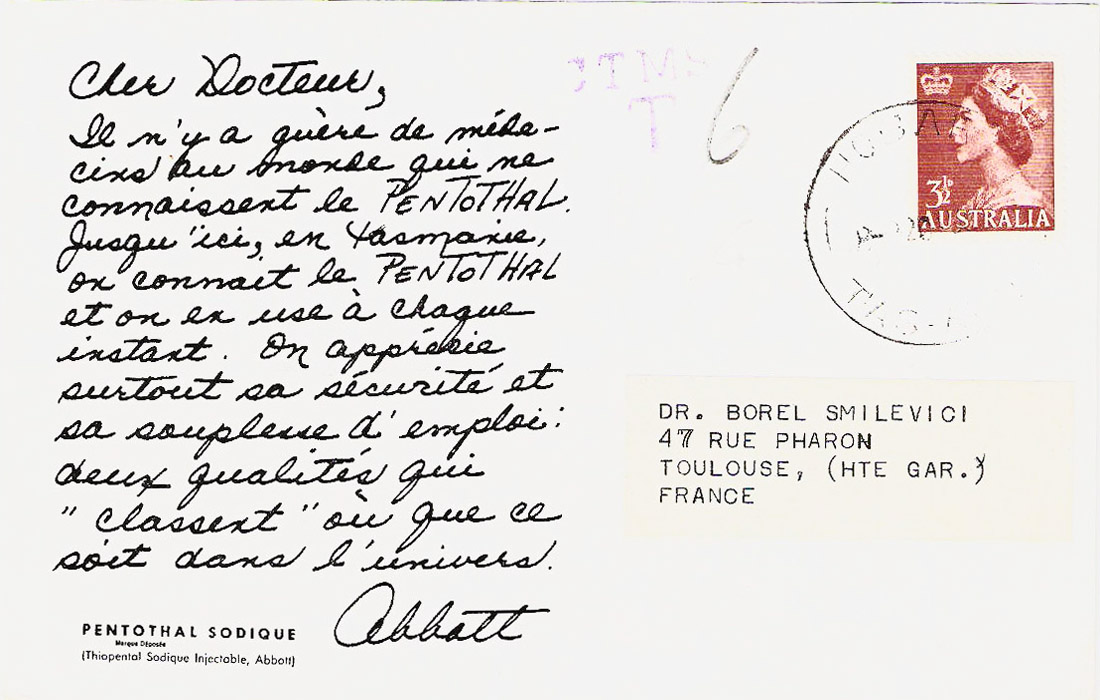 Cher Docteur,
Il n'y a guère de méde-
cins au monde qui ne
connaissent le PENTOTHAL.
Jusqu'ici, en Tasmanie,
on connait le PENTOTHAL
et on en use à chaque
instant. On apprécie
surtout sa sécurité et
sa souplesse d'emploi:
deux qualités qui
"classent" où que ce
soit dans l'univers.
Abbott
PENTOTHAL SODIQUE
Marque Déposée
(Thiopental Sodique Injectable, Abbott)
T
6
3½D
AUSTRALIA
TAS
DR. BOREL SMILEVICI
47 RUE PHARON
TOULOUSE, (HTE GAR.)
FRANCE